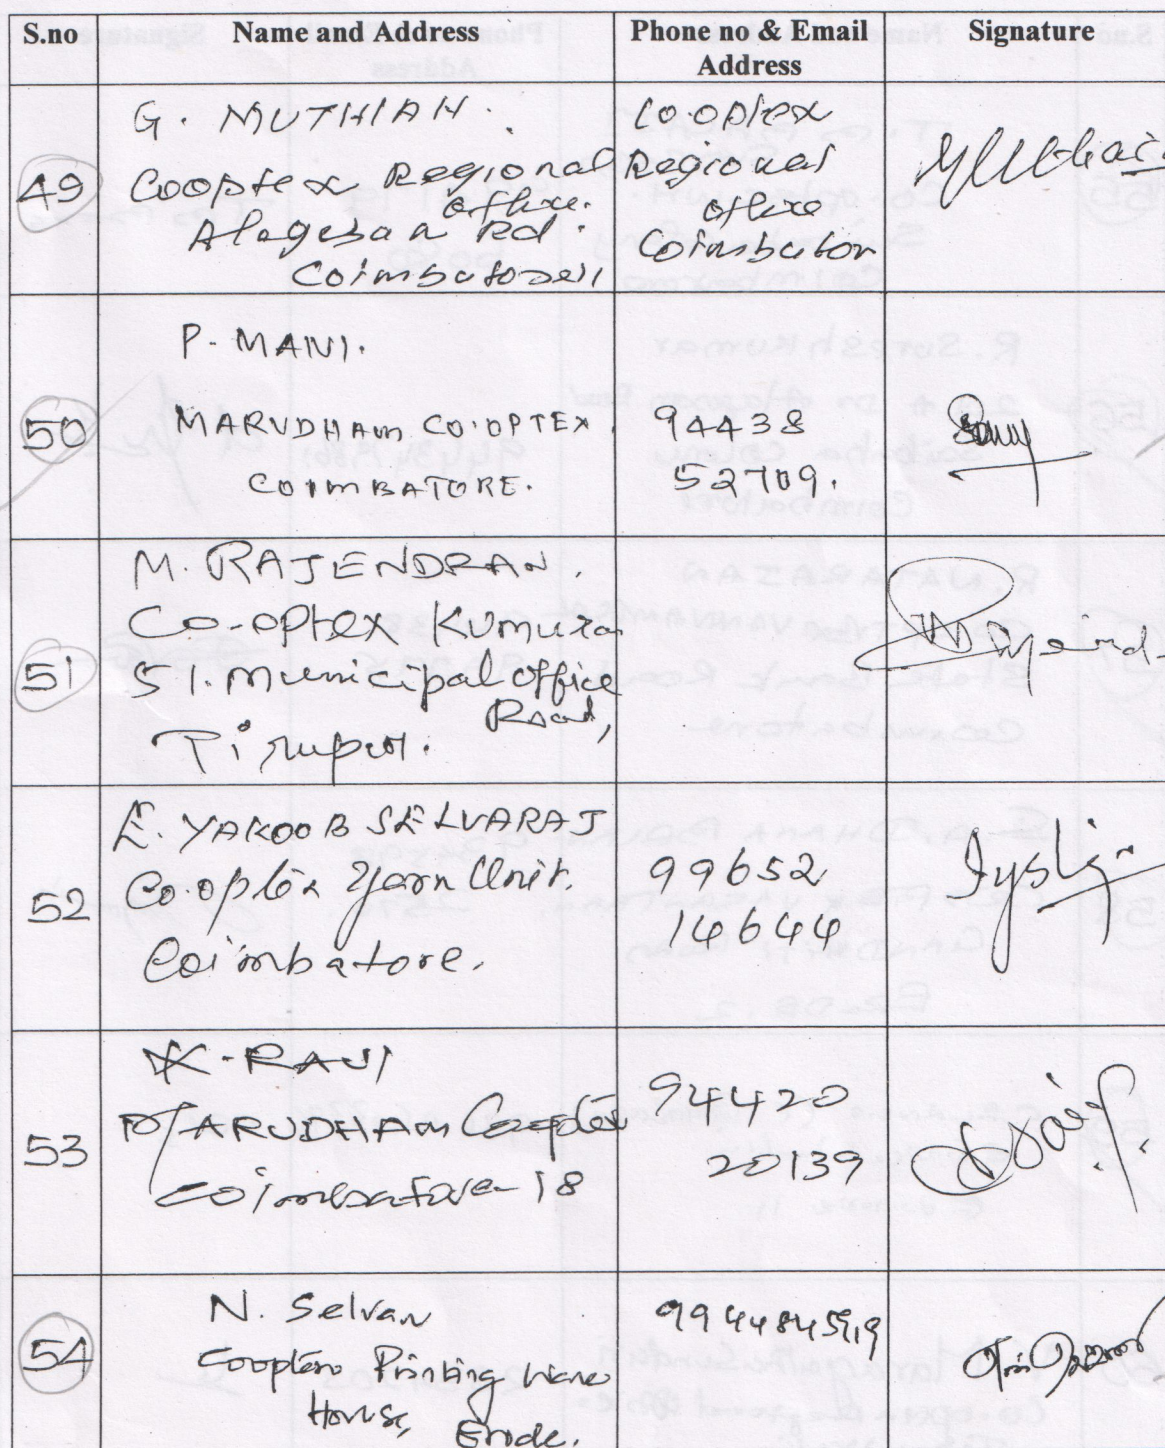 S.no Name and Address Phone no & Email Address Signature
49
G. MUTHIAH.
Cooptex Regional
office.
Alagesan Rd.
Coimbatore 11
Co.optex
Regional
office
Coimbator
50
P. MANI.
MARUDHAM CO.OPTEX
COIMBATORE.
94438
52709.
51
M. RAJENDRAN.
Co-optex Kumara
51. Municipal office
Road,
Tirupur.
52
E. YAKOOB SELVARAJ
Co.optex Yarn Unit.
Coimbatore.
99652
14644
53
K. RAVI
MARUDHAM Cooptex
Coimbatore 18
94420
20139
54
N. Selvan
Cooptex Printing Ware
House,
Erode.